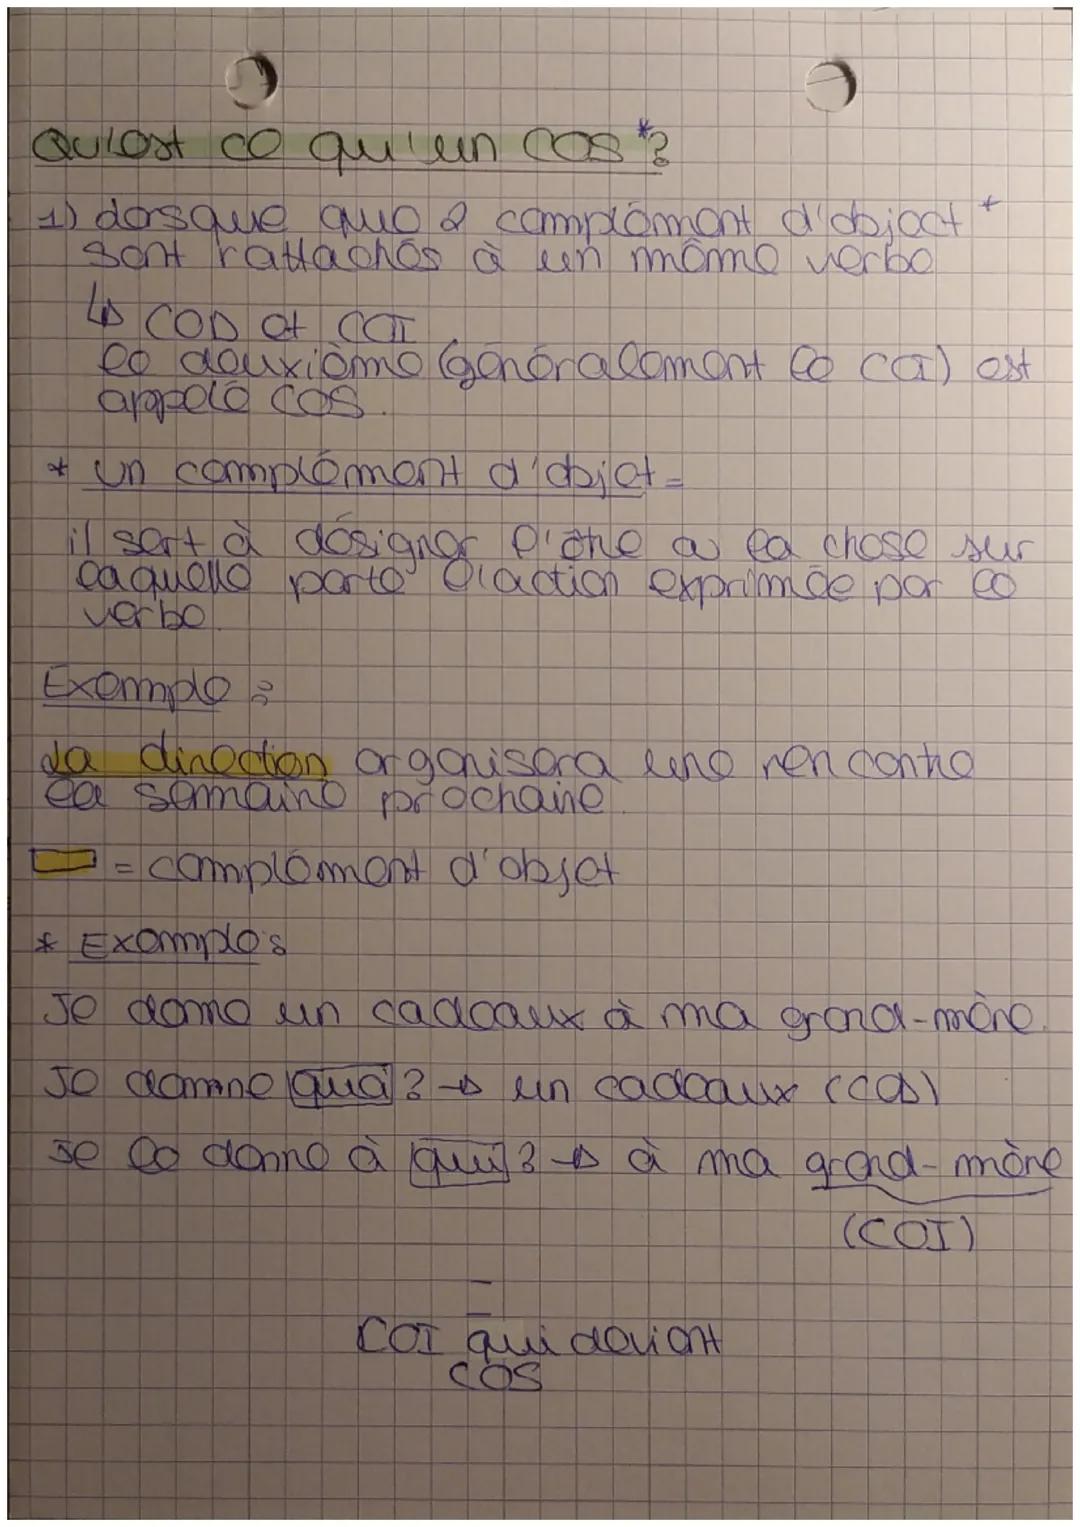 Qu'est ce qu'un COS*?
1) Lorsque que 2 complément d'object *
sont rattachés à un même verbe
↳ COD et COI
le deuxième (généralement le COI) est
appelé COS.
* un complément d'objet =
il sert à désigner l'être ou la chose sur
laquelle porte l'action exprimée par le
verbe.
Exemple :
La direction organisera une rencontre
la semaine prochaine.
= complément d'objet
* Exemples
Je donne un cadeaux à ma grand-mère.
Je donne quoi ? → un cadeaux (COD)
Je le donne à qui ? → à ma grand-mère
(COI)
=
COI qui devient
COS